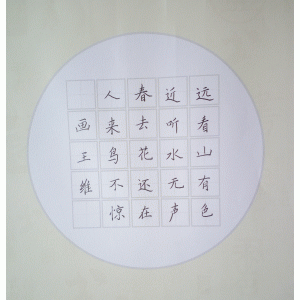 远看山有色
近听水无声
春去花还在
人来鸟不惊
画王维